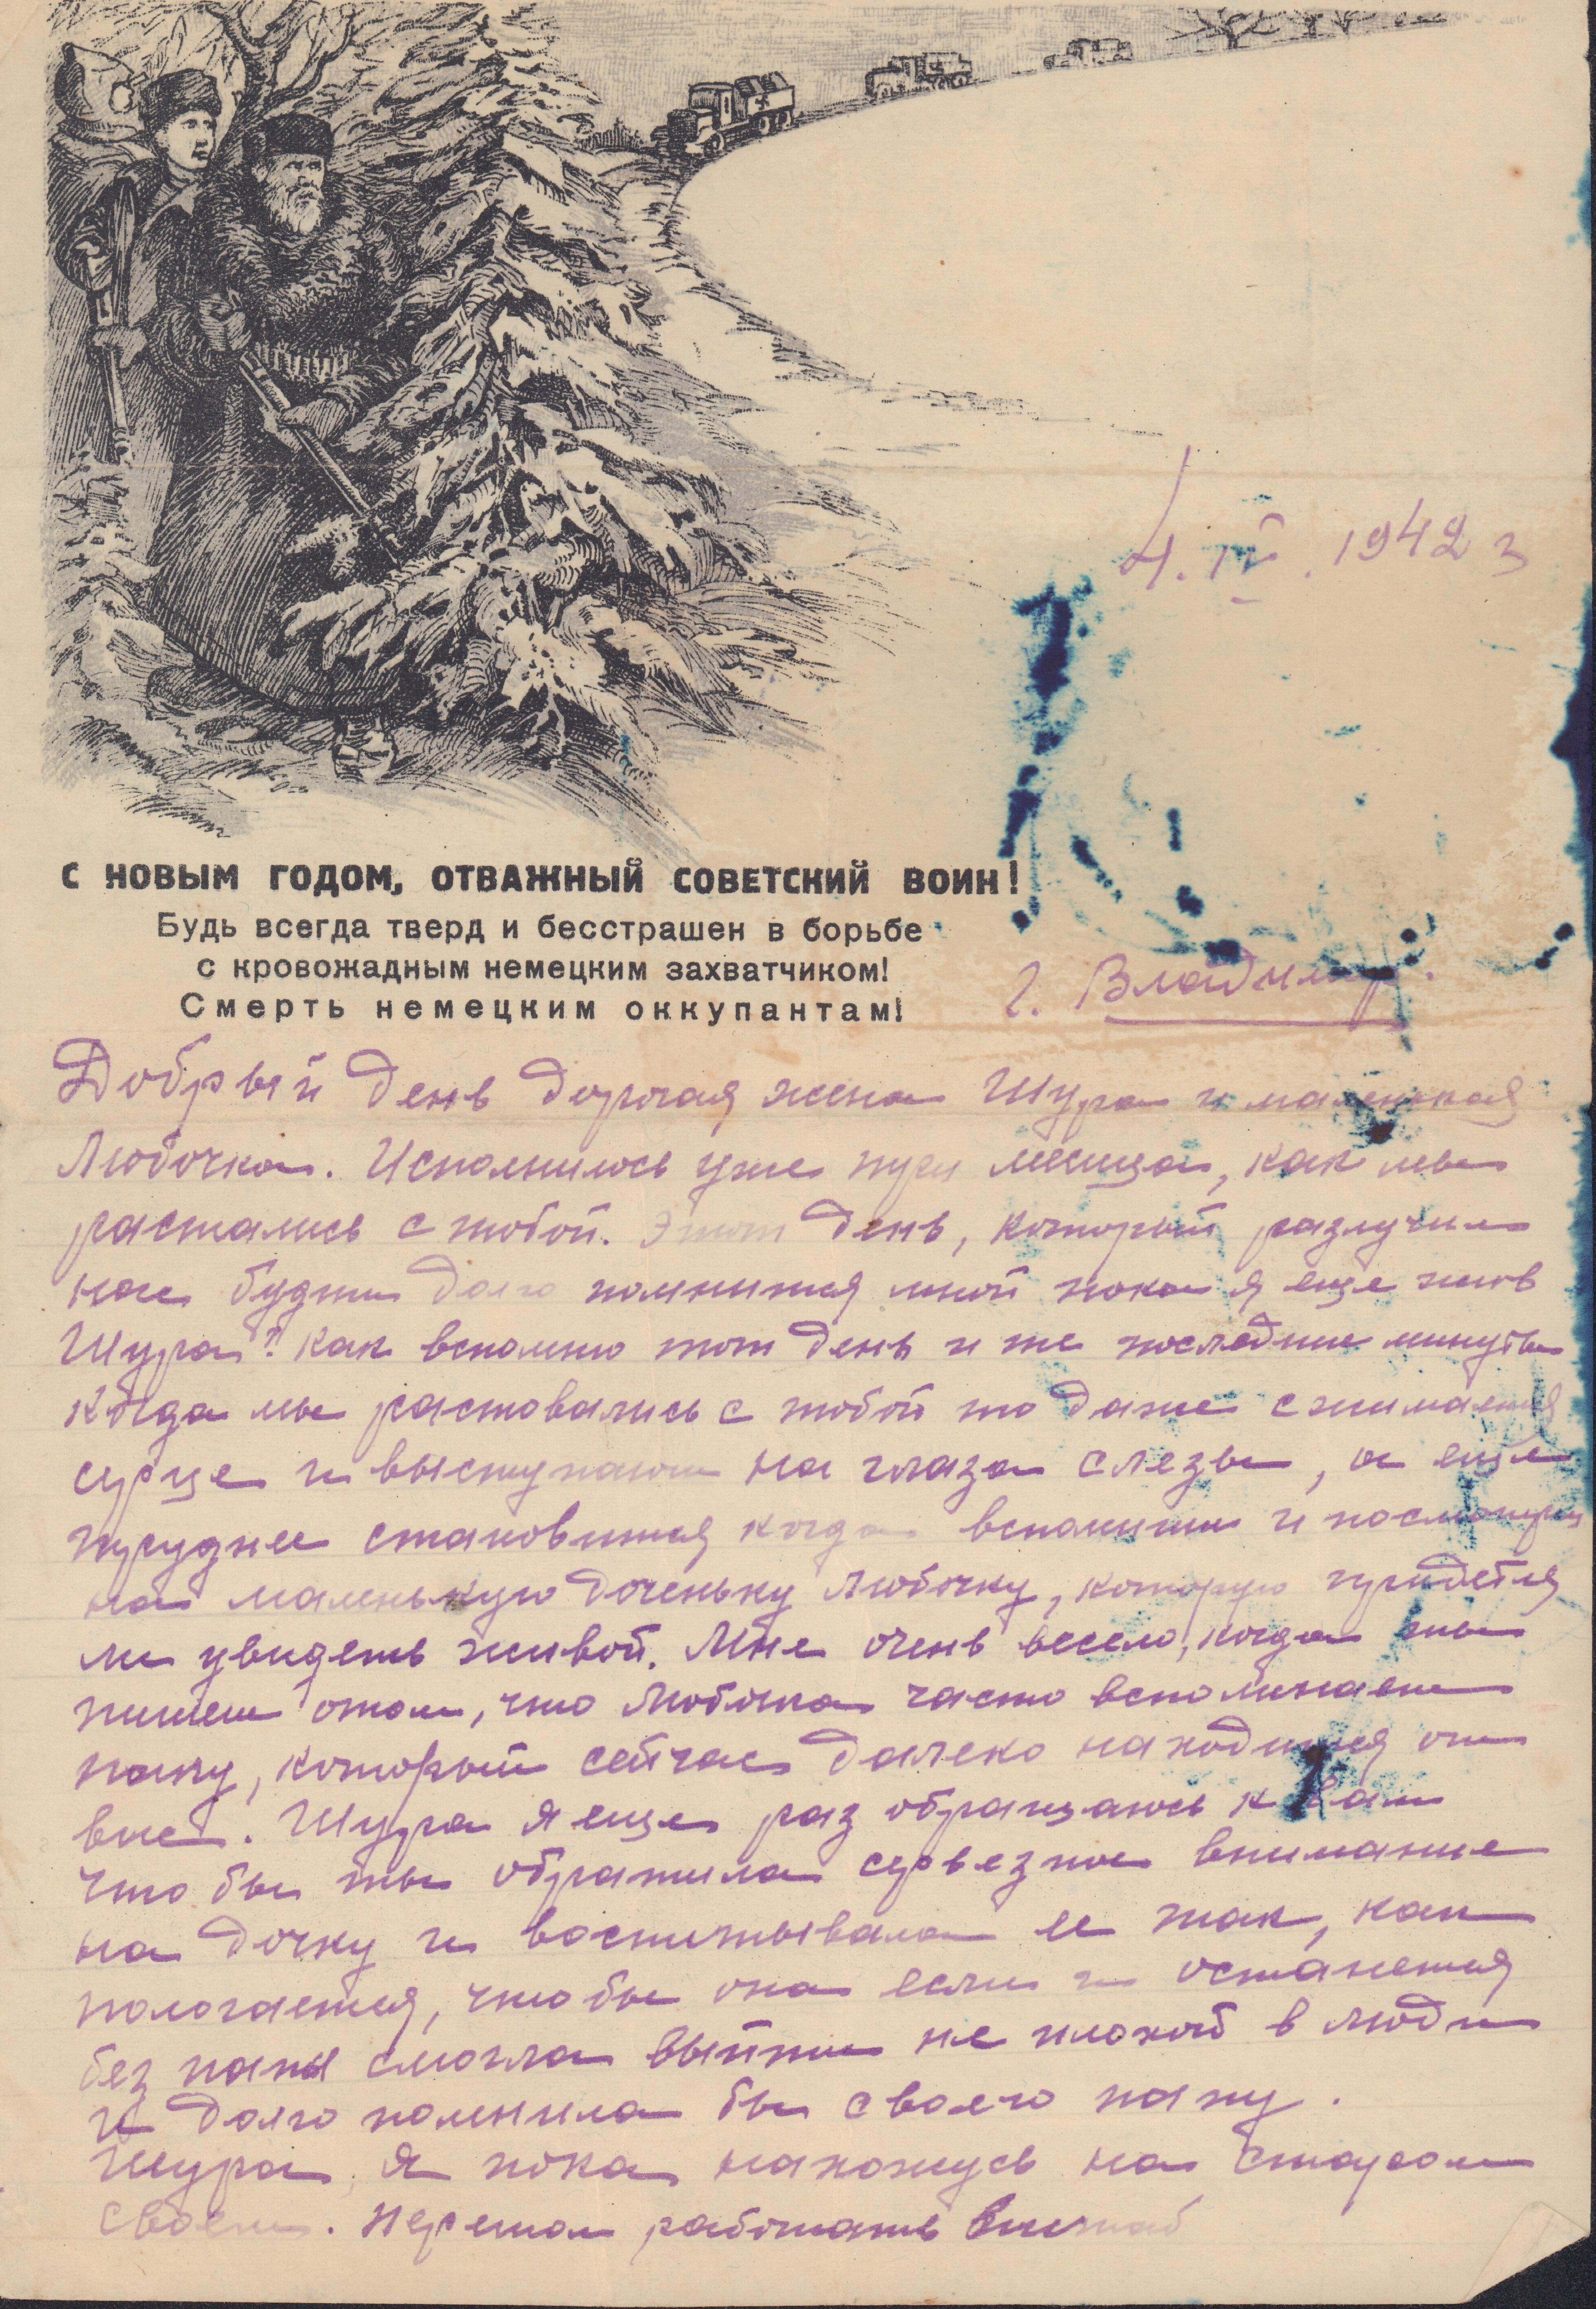 4. IV. 1942 г
С НОВЫМ ГОДОМ, ОТВАЖНЫЙ СОВЕТСКИЙ ВОИН!
Будь всегда тверд и бесстрашен в борьбе
с кровожадным немецким захватчиком!
Смерть немецким оккупантам!
г. Владимир.
Добрый день дорогая жена Шура и маленькая
Любочка. Исполнилось уже три месяца, как мы
растались с тобой. Этот день, который разлучил
нас будит долго помнится мной пока я еще жив
Шура! как вспомню тот день и те последние минуты
когда мы растовались с тобой то даже сжимается
серце и выступают на глаза слезы, а еще
труднее становится когда вспомниш и посмотриш
на маленькую доченьку Любочку, которую придется
ли увидеть живой. Мне очень весело, когда ты
пишеш отом, что Любочка часто вспоминает
папу, который сейчас далеко находится от
вас. Шура я еще раз обращаюсь к Вам
что бы ты обратила серьезное внимание
на дочку и воспитывала ее так, как
пологается, что бы она если и останется
без папы смогла выйти не плохой в люди
и долго помнила бы своего папу.
Шура, я пока нахожусь на старом
своем. перешол работать в штаб